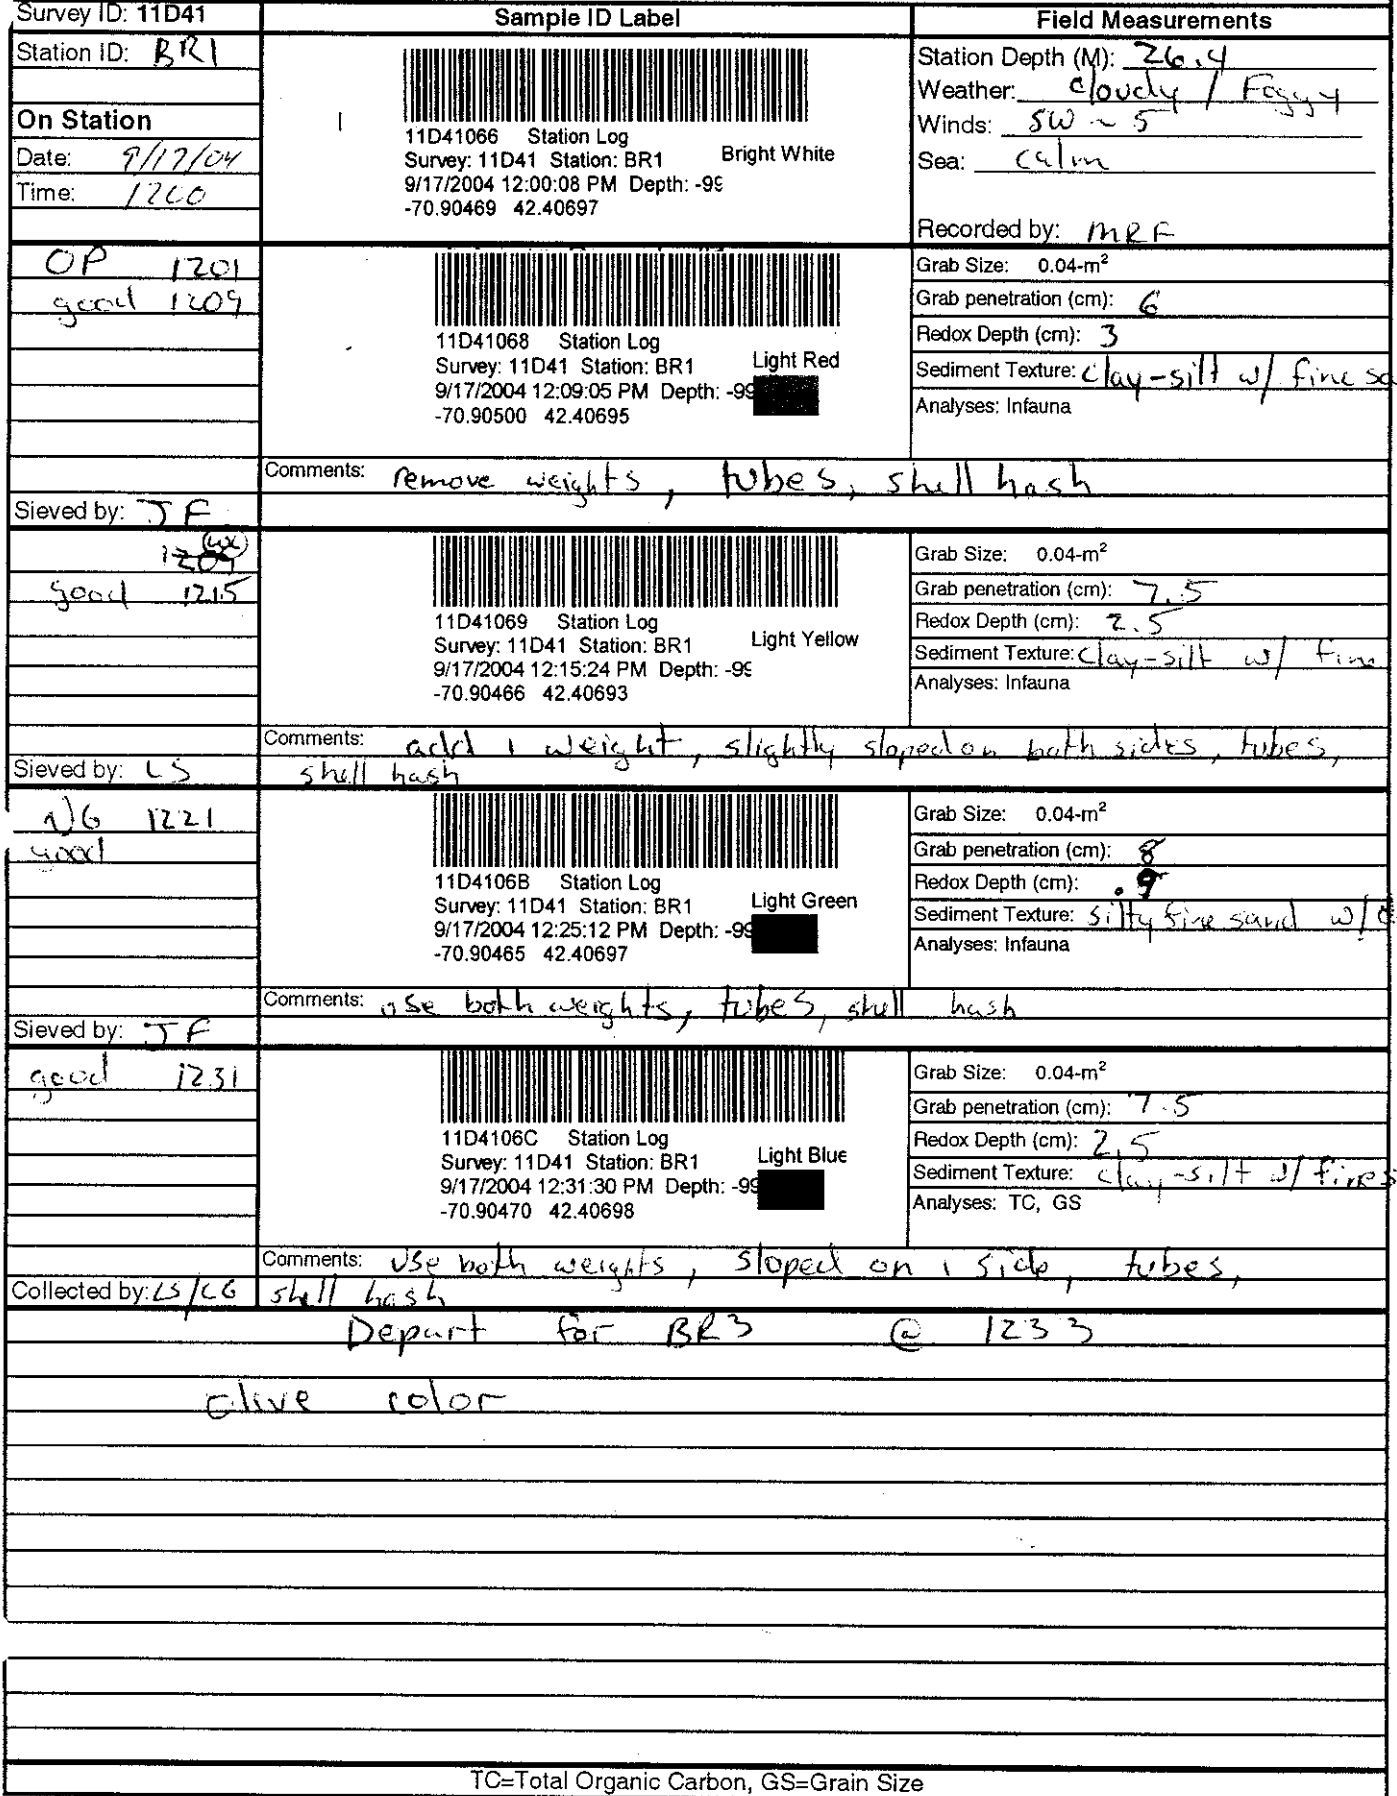 Survey ID: 11D41
Sample ID Label
Field Measurements
Station ID: BR1
On Station
Date: 9/17/04
Time: 1200
11D41066 Station Log
Survey: 11D41 Station: BR1 Bright White
9/17/2004 12:00:08 PM Depth: -99
-70.90469 42.40697
Station Depth (M): 26.4
Weather: cloudy / Foggy
Winds: SW ~ 5
Sea: calm
Recorded by: MRF
OP 1201
good 1209
Sieved by: JF
11D41068 Station Log
Survey: 11D41 Station: BR1 Light Red
9/17/2004 12:09:05 PM Depth: -99
-70.90500 42.40695
Grab Size: 0.04-m²
Grab penetration (cm): 6
Redox Depth (cm): 3
Sediment Texture: clay-silt w/ fine sa
Analyses: Infauna
Comments: remove weights, tubes, shell hash
1209
good 1215
Sieved by: LS
11D41069 Station Log
Survey: 11D41 Station: BR1 Light Yellow
9/17/2004 12:15:24 PM Depth: -99
-70.90466 42.40693
Grab Size: 0.04-m²
Grab penetration (cm): 7.5
Redox Depth (cm): 2.5
Sediment Texture: clay-silt w/ fine
Analyses: Infauna
Comments: add 1 weight, slightly sloped on both sides, tubes,
shell hash
NG 1221
good
Sieved by: JF
11D4106B Station Log
Survey: 11D41 Station: BR1 Light Green
9/17/2004 12:25:12 PM Depth: -99
-70.90465 42.40697
Grab Size: 0.04-m²
Grab penetration (cm): 8
Redox Depth (cm):
Sediment Texture: silty fine sand w/
Analyses: Infauna
Comments: use both weights, tubes, shell hash
good 1231
Collected by: LS/CG
11D4106C Station Log
Survey: 11D41 Station: BR1 Light Blue
9/17/2004 12:31:30 PM Depth: -99
-70.90470 42.40698
Grab Size: 0.04-m²
Grab penetration (cm): 7.5
Redox Depth (cm): 2.5
Sediment Texture: clay-silt w/ fine s
Analyses: TC, GS
Comments: Use both weights, sloped on 1 side, tubes,
shell hash
Depart for BR3 @ 1233
olive color
TC=Total Organic Carbon, GS=Grain Size